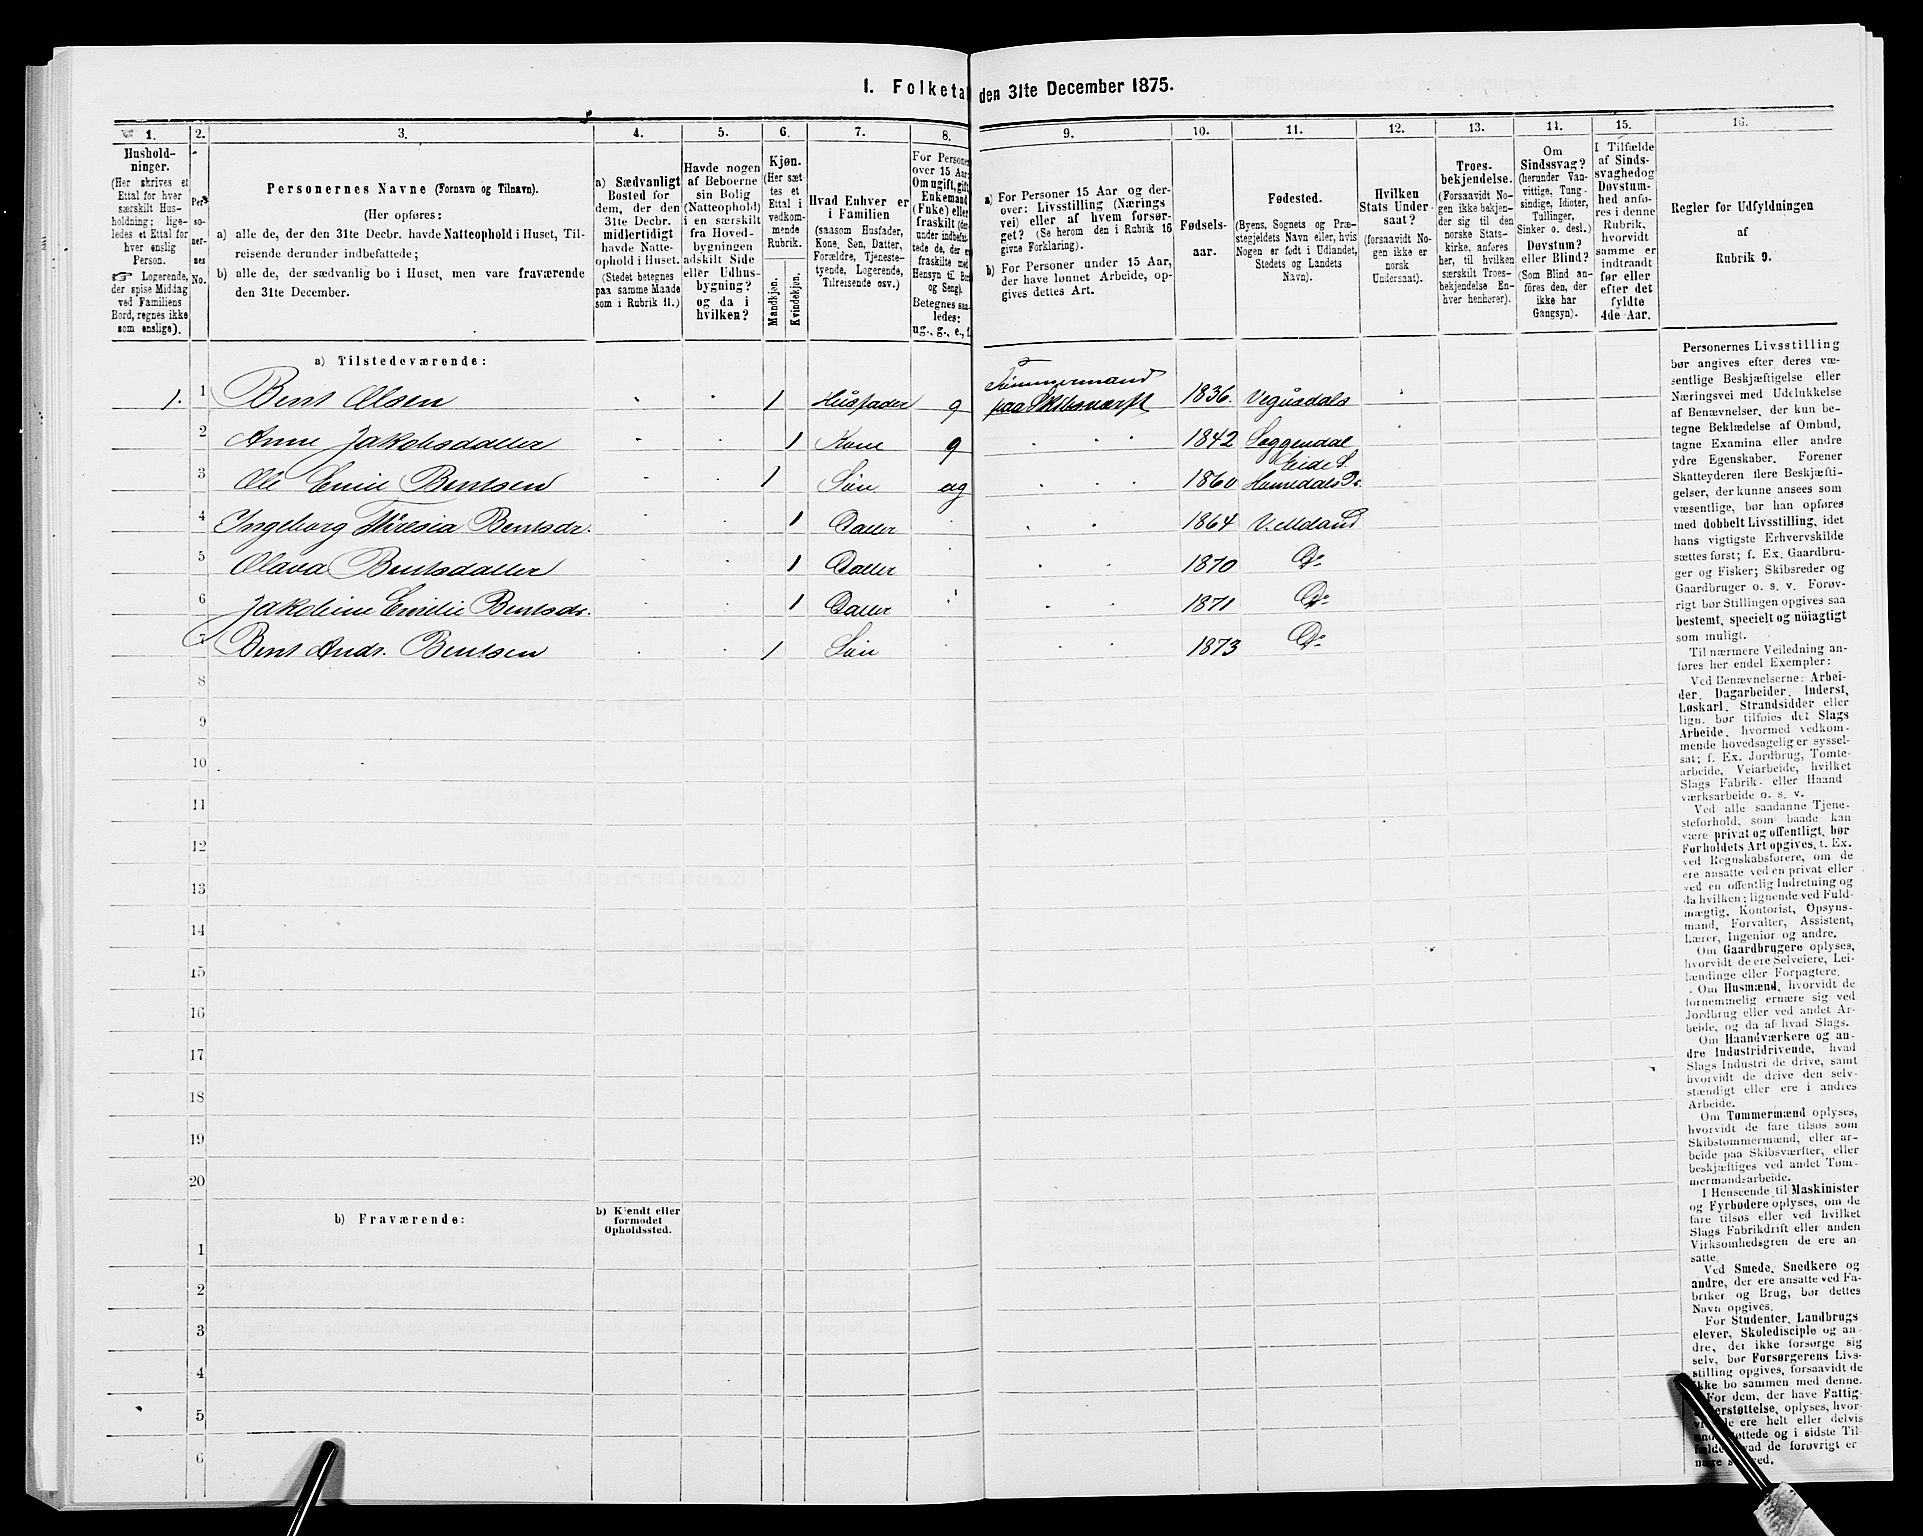 1. Folketal den 31te December 1875.
1. 2. 3. 4. 5. 6. 7. 8. 9. 10. 11. 12. 13. 14. 15. 16.
Hushold-
ninger.
(Her skrives et
Ettal for hver
særskilt Hus-
holdning; lige-
ledes et Ettal for
hver enslig
Person.
☞ Logerende,
der spise Middag
ved Familiens
Bord, regnes ikke
som enslige).
Per-
so-
ner-
nes
No.
Personernes Navne (Fornavn og Tilnavn).
(Her opføres:
a) alle de, der den 31te Decbr. havde Natteophold i Huset, Til-
reisende derunder indbefattede;
b) alle de, der sædvanlig bo i Huset, men vare fraværende
den 31te December.
a) Sædvanligt
Bosted for
dem, der den
31te Decbr.
midlertidigt
havde Natte-
ophold i Huset.
(Stedet betegnes
paa samme Maade
som i Rubrik 11.)
Havde nogen
af Beboerne
sin Bolig
(Natteophold)
i en særskilt
fra Hoved-
bygningen
adskilt Side
eller Udhus-
bygning?
og da i
hvilken?
Kjøn.
(Her sæt-
tes et
Ettal i
vedkom-
mende
Rubrik.
Mandkjøn.
Kvindekjøn.
Hvad Enhver er
i Familien
(saasom Husfader,
Kone, Søn, Datter,
Forældre, Tjeneste-
tyende, Logerende,
Tilreisende osv.)
For Personer
over 15 Aar:
Om ugift, gift,
Enkemand
(Enke) eller
fraskilt (der-
under indbefat-
tede de, der er
fraskilte med
Hensyn til Bord
og Seng).
Betegnes saa-
ledes:
ug., g., e., f.
a) For Personer 15 Aar og der-
over: Livsstilling (Nærings-
vei) eller af hvem forsør-
get? (Se herom den i Rubrik 16
givne Forklaring).
b) For Personer under 15 Aar,
der have lønnet Arbeide, op-
gives dettes Art.
Fødsels-
aar.
Fødested.
(Byens, Sognets og Præ-
stegjeldets Navn eller, hvis
Nogen er født i Udlandet,
Stedets og Landets
Navn).
Hvilken
Stats Under-
saat?
(forsaavidt No-
gen ikke er
norsk
Undersaat).
Troes-
bekjendelse.
(Forsaavidt No-
gen ikke bekjen-
der sig til den
norske Stats-
kirke, anføres
her, til hvilken
særskilt Troes-
bekjendelse En-
hver henhører).
Om
Sindssvag?
(herunder Van-
vittige, Tung-
sindige, Idioter,
Tullinger,
Sinker o. desl.)
Døvstum?
eller Blind?
(Som Blind an-
føres den, der
ikke har
Gangsyn).
I Tilfælde
af Sinds-
svaghed og
Døvstum-
hed anfø-
res i denne
Rubrik,
hvorvidt
samme er
indtraadt
før eller
efter det
fyldte
4de Aar.
Regler for Udfyldningen
af
Rubrik 9.
a) Tilstedeværende:
1. 1 Bent Olsen 1 Husfader g Tømmermand paa Skibsværft 1836. Vegusdals
2 Anne Jakobsdatter 1 Kone g 1842 Soggendal
3 Ole Emil Bentsen 1 Søn ug 1860 Eide S. Homedals Pr
4 Ingeborg Thresia Bentsdr. 1 Datter 1864 V. Moland
5 Olava Bentsdatter 1 Datter 1870 Do
6 Jakobine Emilie Bentsdr. 1 Datter 1871 Do
7 Bent Andr. Bentsen 1 Søn 1873 Do
8
9
10
11
12
13
14
15
16
17
18
19
20
b) Fraværende:
b) Kjendt eller
formodet
Opholdssted.
1
2
3
4
5
6
Personernes Livsstilling
bør angives efter deres væ-
sentlige Beskjæftigelse eller
Næringsvei med Udelukkelse
af Benævnelser, der kun be-
tegne Beklædelse af Ombud,
tagne Examina eller andre
ydre Egenskaber. Forener
Skatteyderen flere Beskjæfti-
gelser, der kunne ansees som
væsentlige, bør han opføres
med dobbelt Livsstilling, idet
hans vigtigste Erhvervskilde
sættes først; f. Ex. Gaardbru-
ger og Fisker; Skibsreder og
Gaardbruger o. s. v. Forøv-
rigt bør Stillingen opgives saa
bestemt, specielt og nöiagtigt
som muligt.
Til nærmere Veiledning an-
føres her endel Exempler:
Ved Benævnelserne: Arbei-
der, Dagarbeider, Inderst,
Løskarl, Strandsidder eller
lign. bør tilføies det Slags
Arbeide, hvormed vedkom-
mende hovedsagelig er syssel-
sat; f. Ex. Jordbrug, Tomte-
arbeide, Veiarbeide, hvilket
Slags Fabrik- eller Haand-
værksarbeide o. s. v.
Ved alle saadanne Tjene-
steforhold, som baade kan
være privat og offentligt, bør
Forholdets Art opgives, t. Ex.
ved Regnskabsførere, om de
ere ansatte ved en privat eller
ved en offentlig Indretning og
da hvilken; lignende ved Fuld-
mægtig, Kontorist, Opsyns-
mand, Forvalter, Assistent,
Lærer, Ingeniør og andre.
Om Gaardbrugere oplyses,
hvorvidt de ere Selveiere, Lei-
lændinge eller Forpagtere.
Om Husmænd, hvorvidt de
fornemmelig ernære sig ved
Jordbrug eller ved andet Ar-
beide, og da af hvad Slags.
Om Haandværkere og an-
dre Industridrivende, hvad
Slags Industri de drive, samt
hvorvidt de drive den selv-
stændigt eller ere i andres
Arbeide.
Om Tømmermænd oplyses,
hvorvidt de fare tilsøs som
Skibstømmermænd, eller ar-
beide paa Skibsværfter, eller
beskjæftiges ved andet Tøm-
mermandsarbeide.
I Henseende til Maskinister
og Fyrbødere oplyses, om de
fare tilsøs eller ved hvilket
Slags Fabrikdrift eller anden
Virksomhedsgren de ere an-
satte.
Ved Smede, Snedkere og
andre, der ere ansatte ved Fa-
briker og Brug, bør dettes
Navn opgives.
For Studenter, Landbrugs-
elever, Skoledisciple og an-
dre, der ikke forsørge sig
selv, bør Forsørgerens Livs-
stilling opgives, forsaavidt de
ikke bo sammen med denne.
For dem, der have Fattig-
understøttelse, oplyses, hvor-
vidt de ere helt eller delvis
understøttede og i sidste Til-
fælde, hvad de forøvrigt er
nære sig ved.